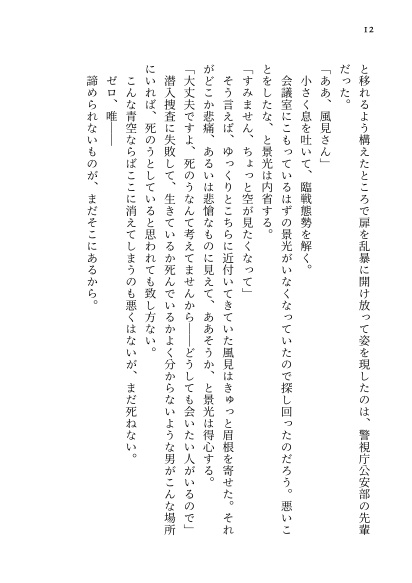 12
と移れるよう構えたところで扉を乱暴に開け放って姿を現したのは、警視庁公安部の先輩
だった。
「ああ、風見さん」
小さく息を吐いて、臨戦態勢を解く。
会議室にこもっているはずの景光がいなくなっていたので探し回ったのだろう。悪いこ
とをしたな、と景光は内省する。
「すみません、ちょっと空が見たくなって」
そう言えば、ゆっくりとこちらに近付いてきていた風見はきゅっと眉根を寄せた。それ
がどこか悲痛、あるいは悲愴なものに見えて、ああそうか、と景光は得心する。
「大丈夫ですよ、死のうなんて考えてませんから――どうしても会いたい人がいるので」
潜入捜査に失敗して、生きているか死んでいるかよく分からないような男がこんな場所
にいれば、死のうとしていると思われても致し方ない。
こんな青空ならばここに消えてしまうのも悪くはないが、まだ死ねない。
ゼロ、唯――
諦められないものが、まだそこにあるから。